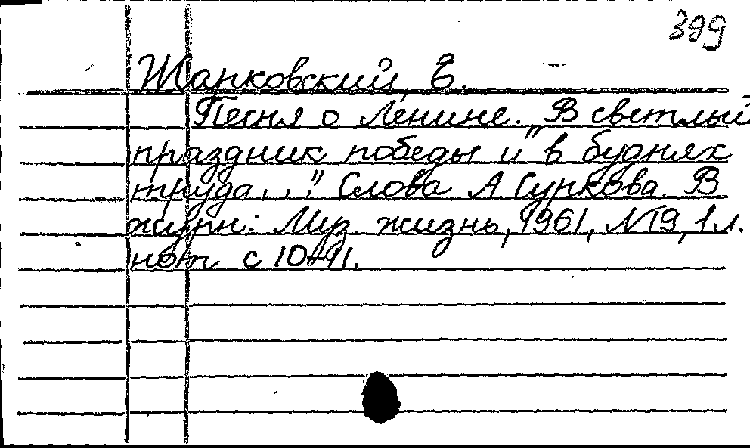 399
Жарковский, Е.
Песня о Ленине. "В светлый
праздник победы и в буднях
труда..." Слова А. Суркова. В
журн: Муз. жизнь, 1961, №19, 1 л.
нот с 10-11.